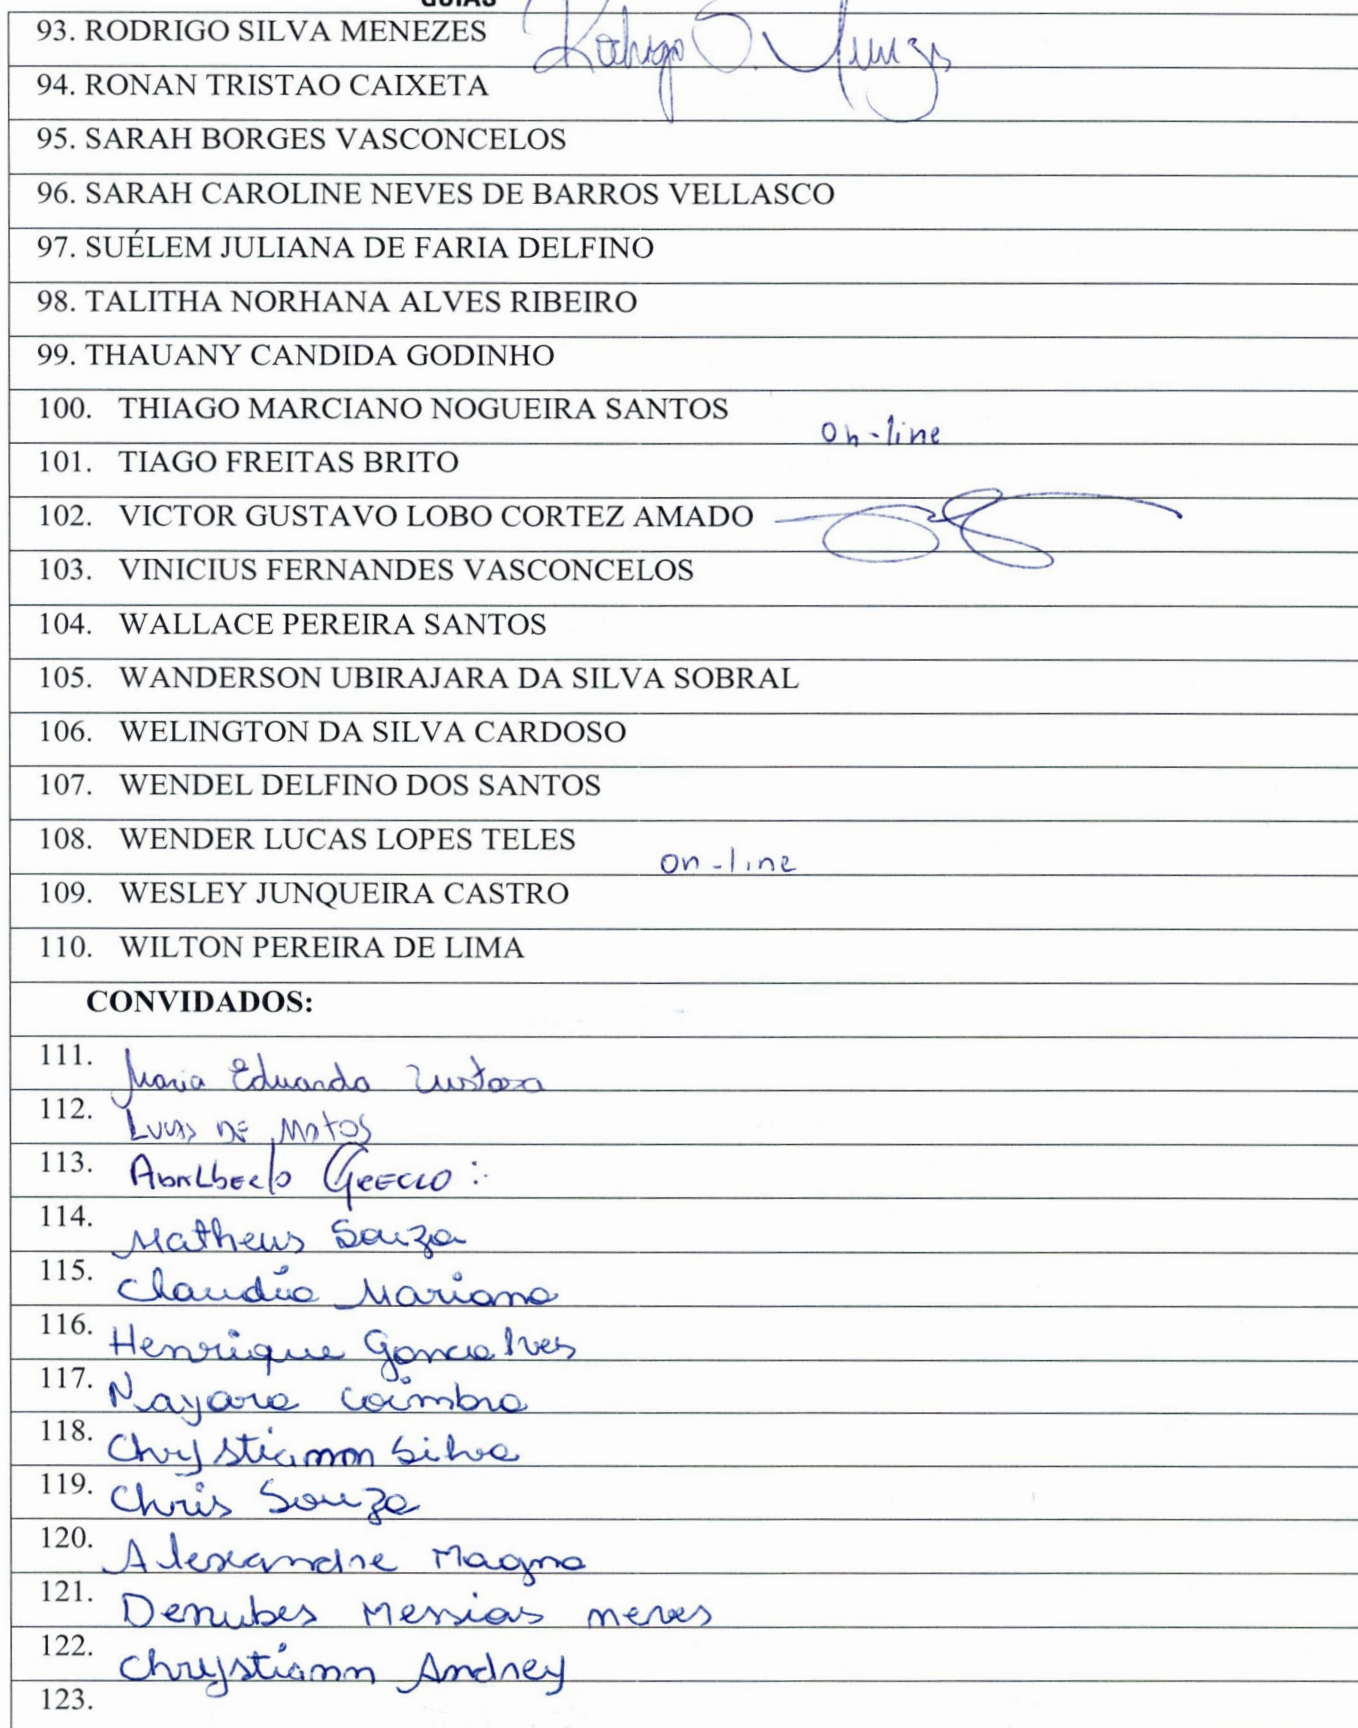 93. RODRIGO SILVA MENEZES Rodrigo S.
94. RONAN TRISTAO CAIXETA
95. SARAH BORGES VASCONCELOS
96. SARAH CAROLINE NEVES DE BARROS VELLASCO
97. SUÉLEM JULIANA DE FARIA DELFINO
98. TALITHA NORHANA ALVES RIBEIRO
99. THAUANY CANDIDA GODINHO
100. THIAGO MARCIANO NOGUEIRA SANTOS on-line
101. TIAGO FREITAS BRITO
102. VICTOR GUSTAVO LOBO CORTEZ AMADO
103. VINICIUS FERNANDES VASCONCELOS
104. WALLACE PEREIRA SANTOS
105. WANDERSON UBIRAJARA DA SILVA SOBRAL
106. WELINGTON DA SILVA CARDOSO
107. WENDEL DELFINO DOS SANTOS
108. WENDER LUCAS LOPES TELES on-line
109. WESLEY JUNQUEIRA CASTRO
110. WILTON PEREIRA DE LIMA
CONVIDADOS:
111. Maria Eduarda
112. LUCAS DE MATOS
113. ADALBERTO
114. Matheus Souza
115. Claudia Mariano
116. Henrique Goncalves
117. Nayara Coimbra
118. Chrystiann Silva
119. Chris Souza
120. Alexandre Magno
121. Denubes Messias neves
122. Chrystiann Andrey
123.